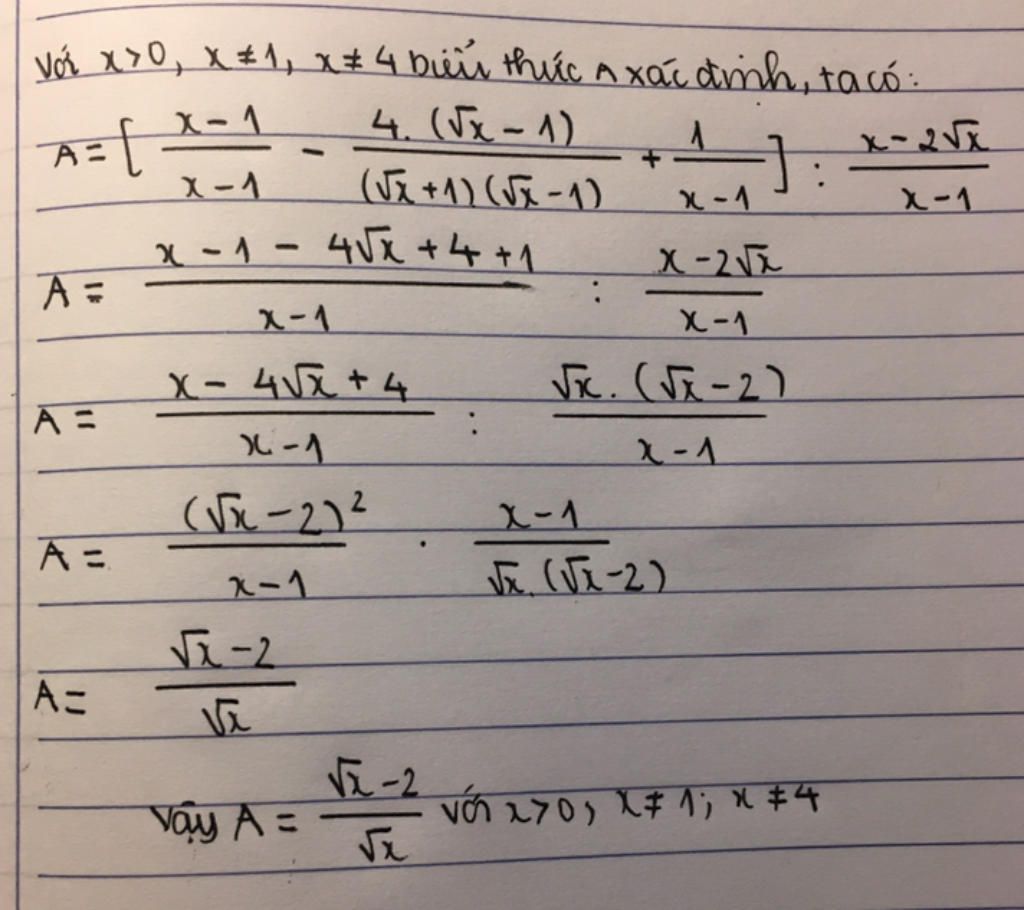 Với x>0, x≠1, x≠4 biểu thức A xác định, ta có:
A = [ (x-1)/(x-1) - (4.(√x-1))/((√x+1)(√x-1)) + 1/(x-1) ] : (x-2√x)/(x-1)
A = (x-1-4√x+4+1)/(x-1) : (x-2√x)/(x-1)
A = (x-4√x+4)/(x-1) : (√x.(√x-2))/(x-1)
A = (√x-2)²/(x-1) . (x-1)/(√x.(√x-2))
A = (√x-2)/√x
Vậy A = (√x-2)/√x với x>0; x≠1; x≠4